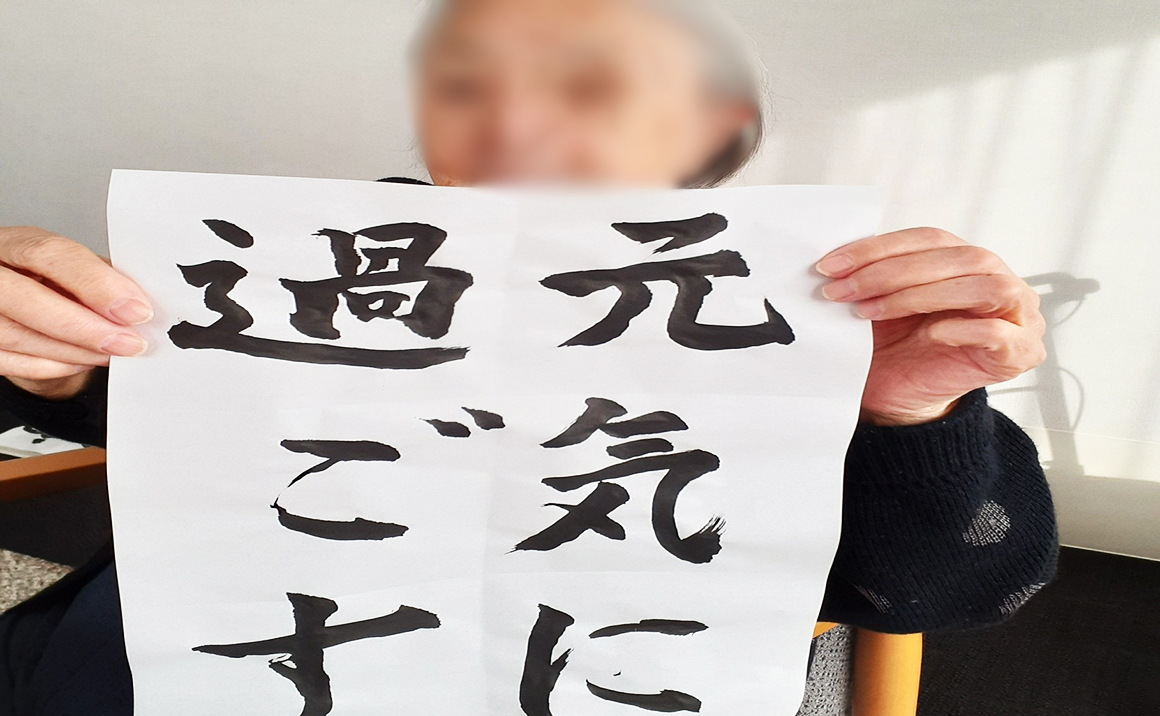 元気に
過ごす